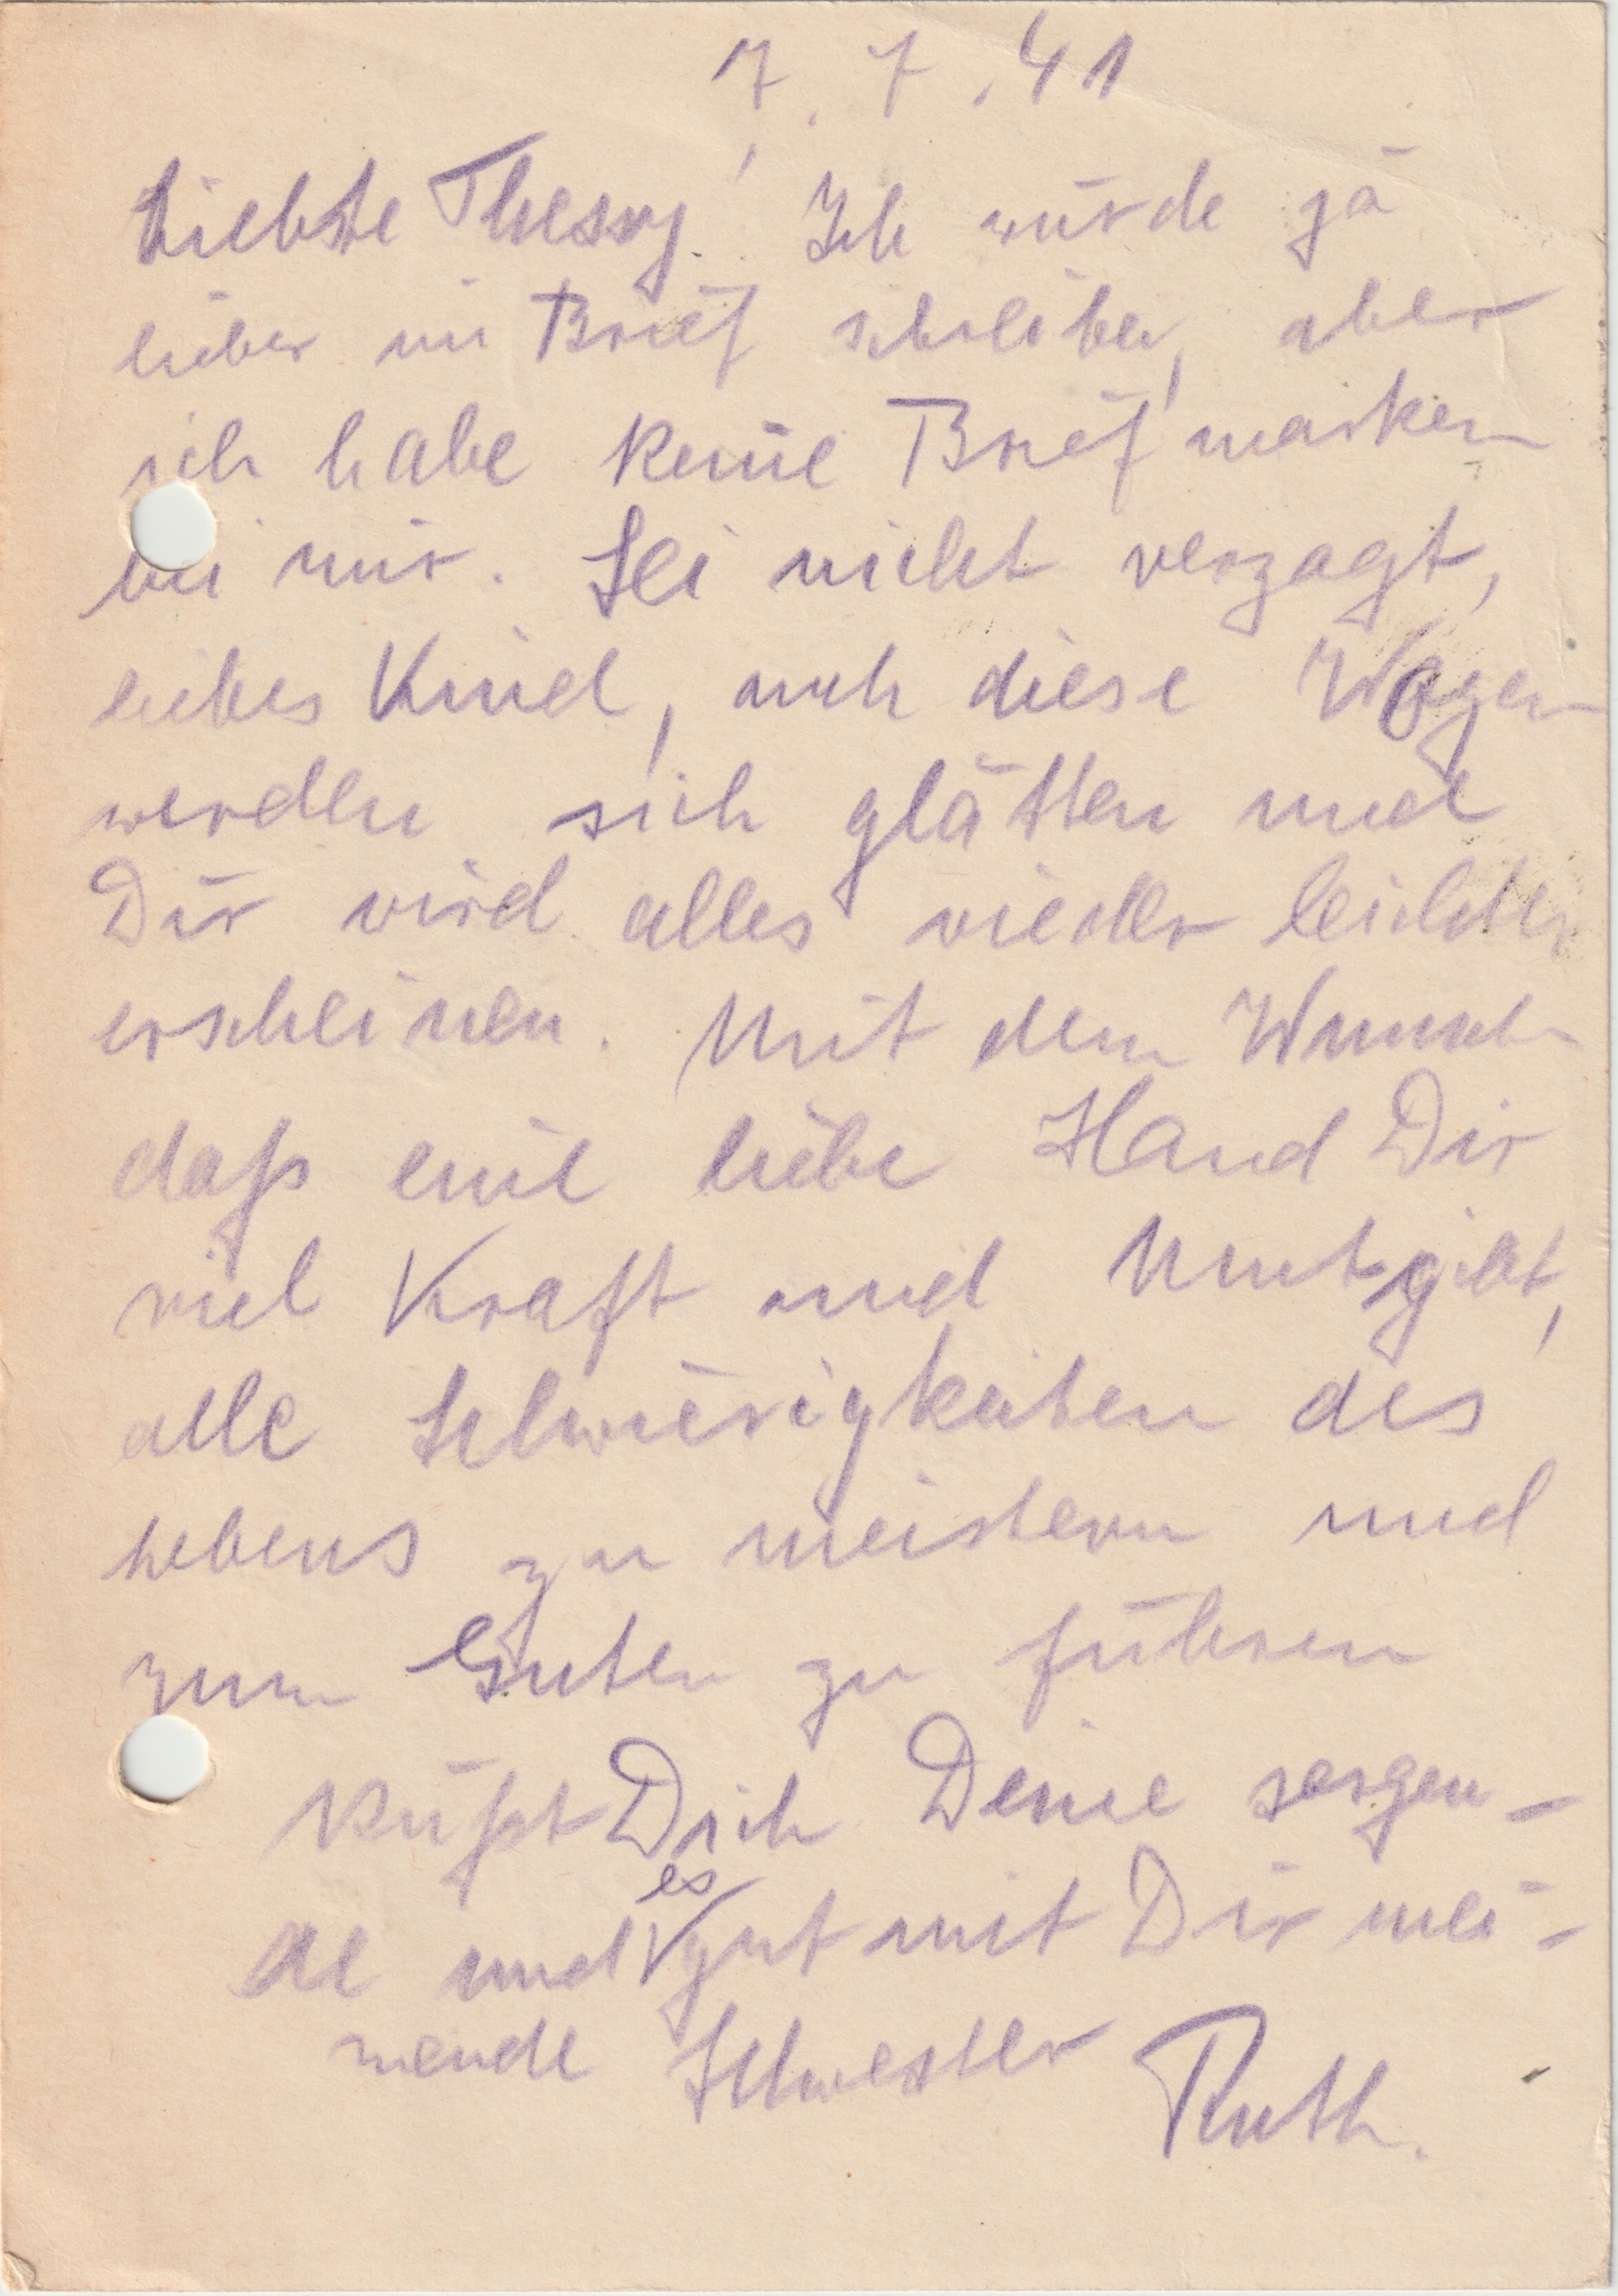 7. 7. 41
Liebste Thesy! Ich würde ja
lieber im Brief schreiben, aber
ich habe keine Briefmarken
bei mir. Sei nicht verzagt,
liebes Kind, auch diese Wogen
werden sich glätten und
Dir wird alles wieder leichter
erscheinen. Mit dem Wunsch
daß eine liebe Hand Dir
viel Kraft und Mut gibt,
alle Schwierigkeiten des
Lebens zu meistern und
zum Guten zu führen
küßt Dich Deine sorgen-
de und es gut mit Dir mei-
nende Schwester Ruth.